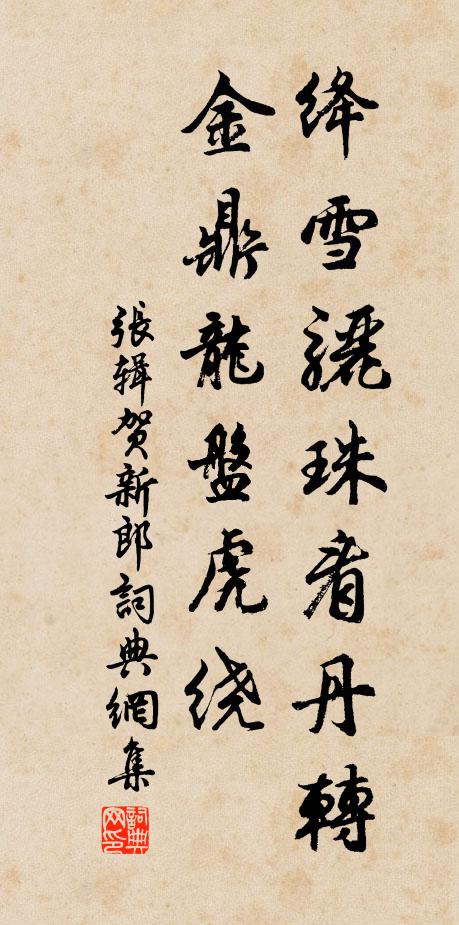 绛雪骊珠看丹轉
金鼎龍盤虎绕
張辑贺新郎詞典網集
詞典网印